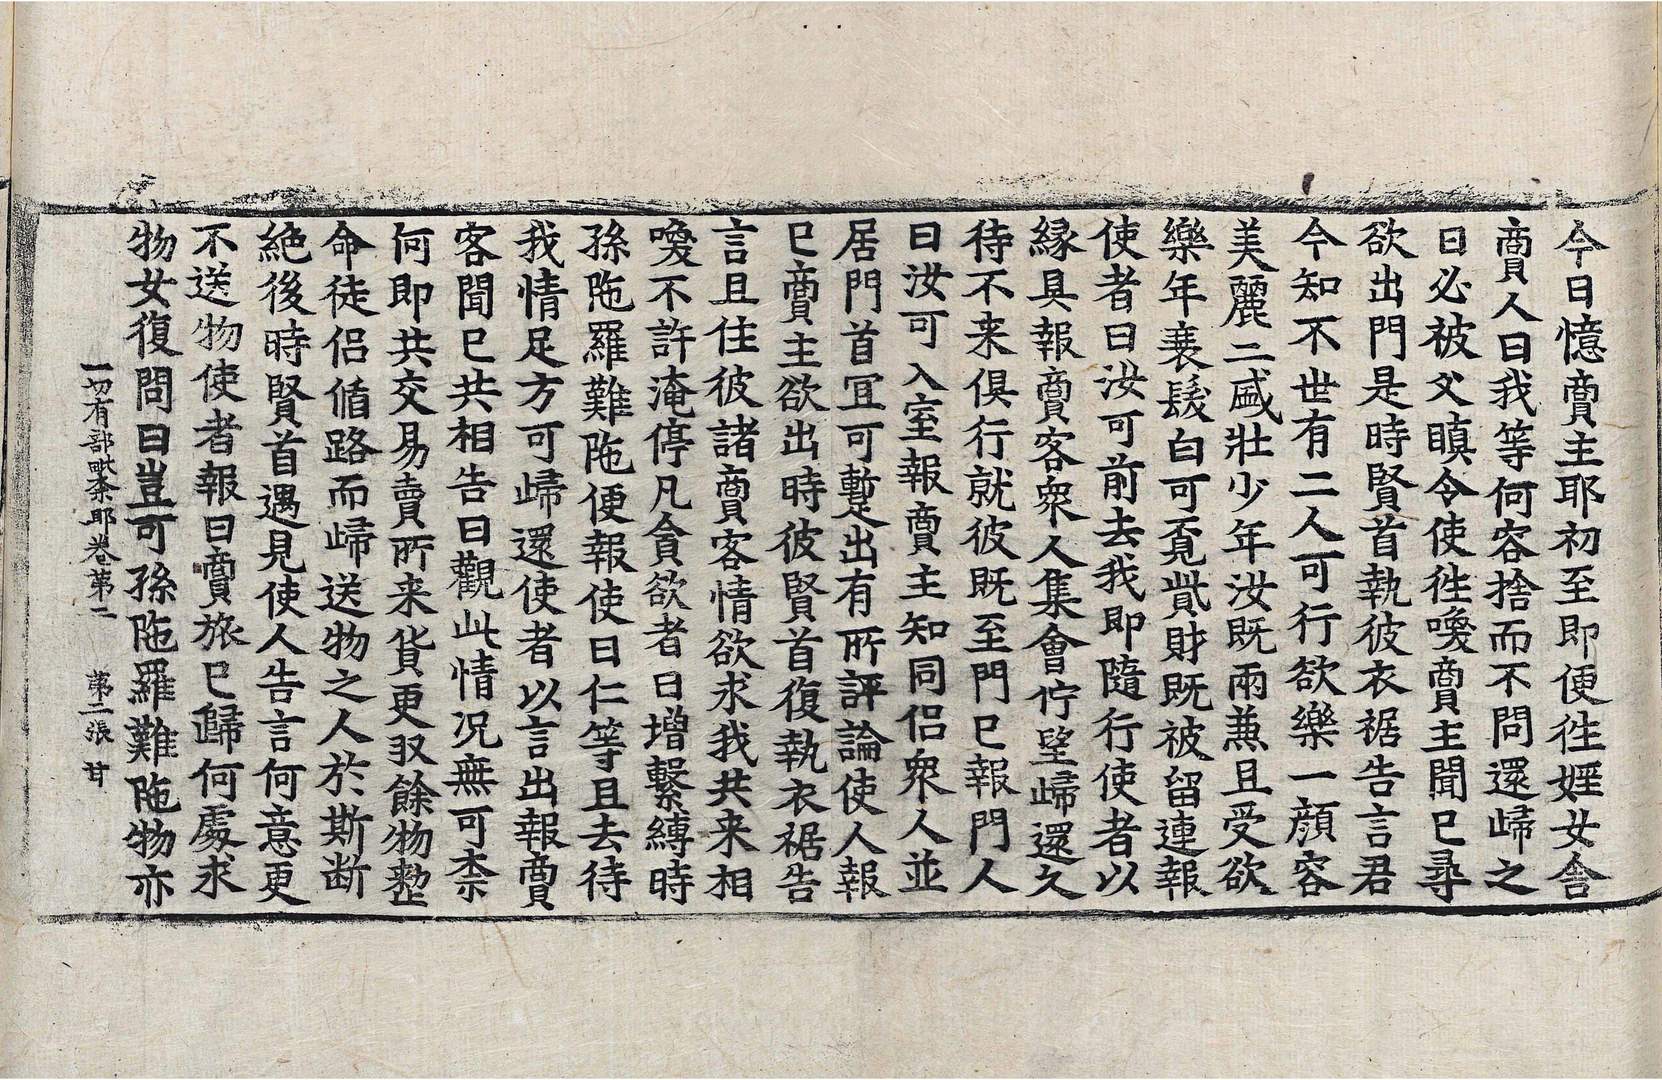 今日憶啇主耶初至即便徃婬女舎
啇人曰我等何容捨而不問還歸之
日必被父瞋令使徃喚啇主聞已尋
欲出門是時賢首執彼衣裾告言君
今知不世有二人可行欲樂一顔容
美麗二盛壯少年汝既兩兼且受欲
樂年衰髮白可覔貲財既被留連報
使者曰汝可前去我即隨行使者以
縁具報啇客衆人集會佇望歸還久
待不来俱行就彼既至門已報門人
曰汝可入室報啇主知同侣衆人並
居門首冝可蹔出有所評論使人報
已啇主欲出時彼賢首復執衣裾告
言且住彼諸啇客情欲求我共来相
喚不許淹停凡貪欲者曰增繫縛時
孫陁羅難陁便報使曰仁等且去待
我情足方可歸還使者以言出報啇
客聞已共相告曰觀此情况無可柰
何即共交易賣所来貨更収餘物整
命徒侣循路而歸送物之人於斯断
絶後時賢首遇見使人告言何意更
不送物使者報曰啇旅已歸何處求
物女復問曰豈可孫陁羅難陁物亦
一切有部毗柰耶卷第二　第二張　甘